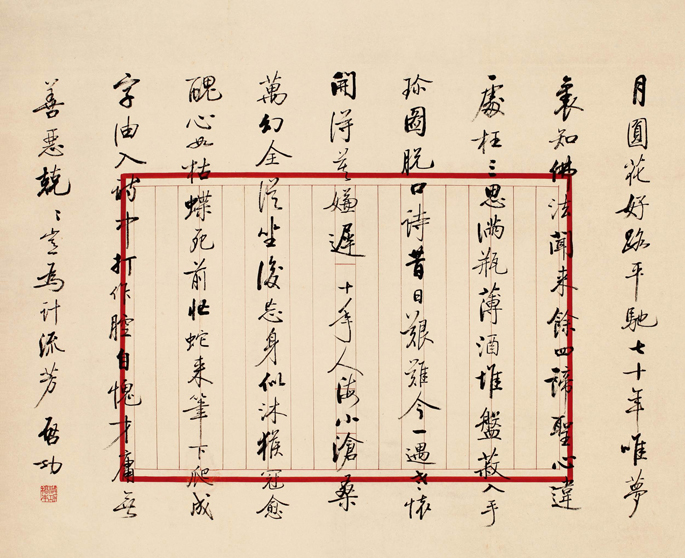 月圓花好路平馳七十年唯夢
裏知佛法聞来餘四諦聖心違
處枉三思滿瓶薄酒堆盤菽入手
珍圖脱口詩昔日艱難今一遇老懷
開得莫嫌遲 十年人海小滄桑
萬幻全從坐後忘身似沐猴冠愈
醜心如枯蝶死前忙蛇来筆下爬成
字油入詩中打作腔自愧才庸無
善惡兢〻豈為計流芳 啓功